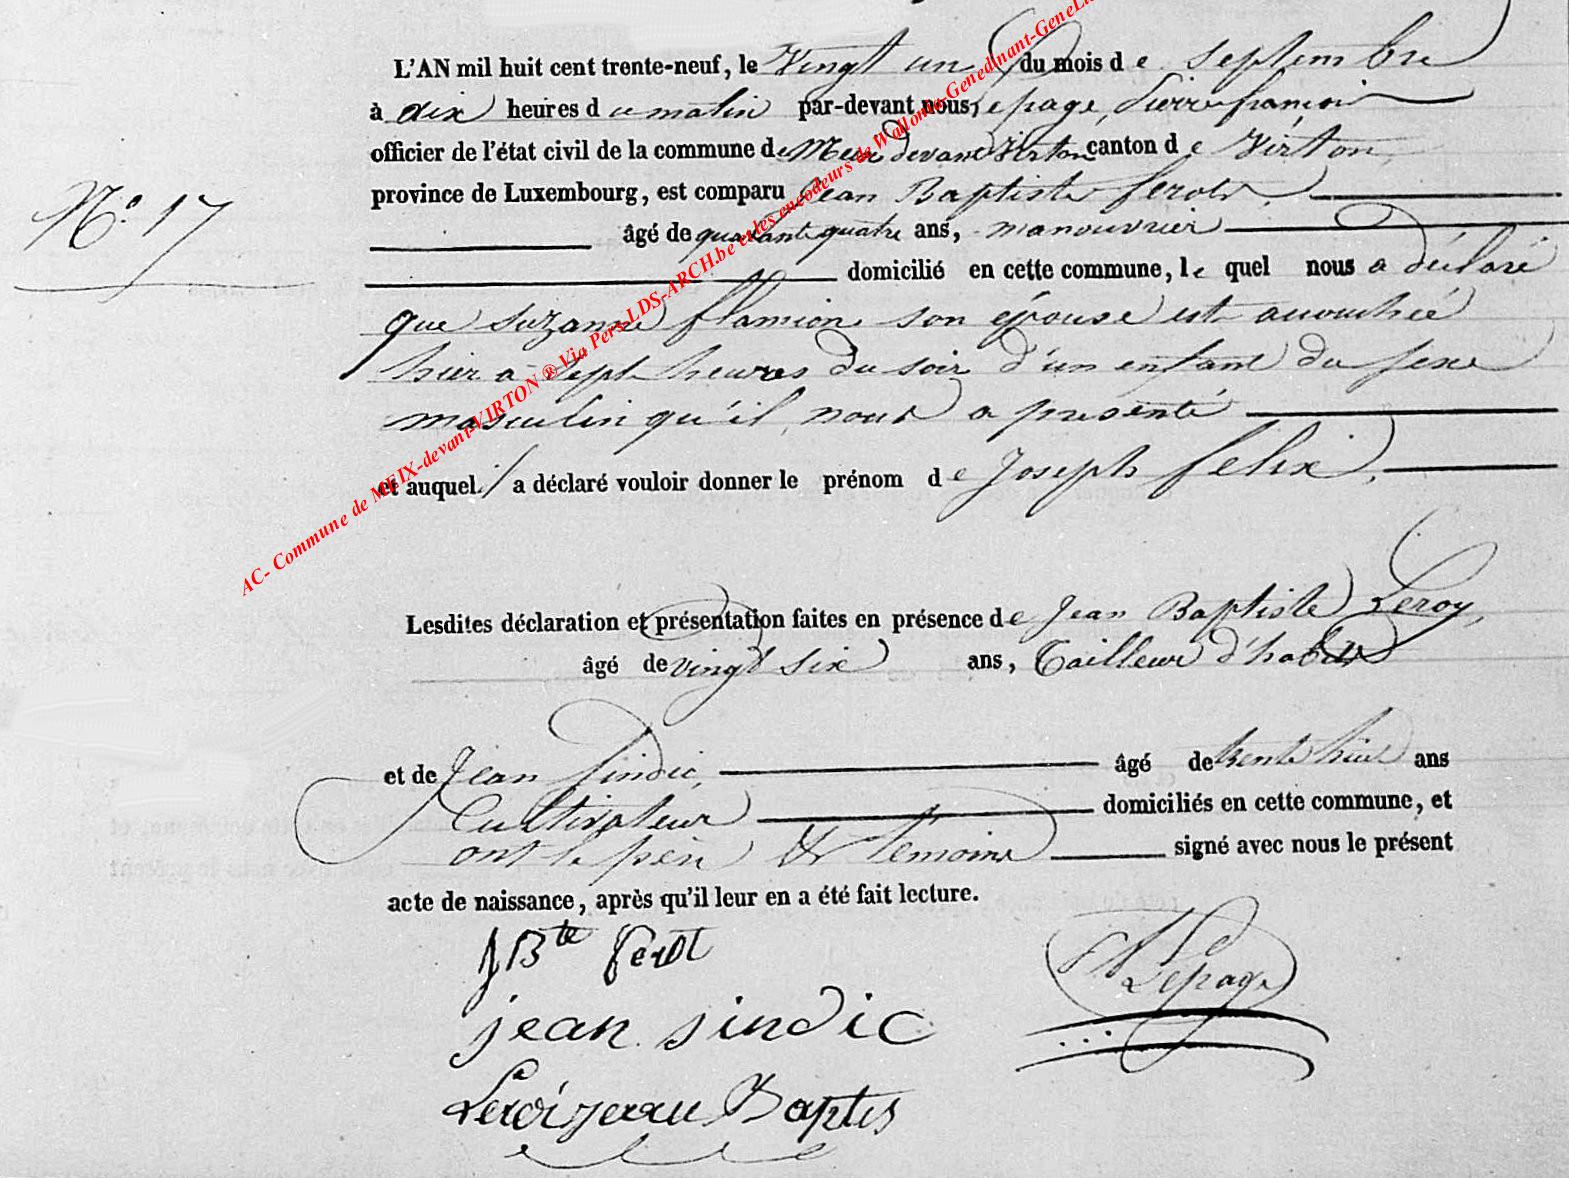 L'AN mil huit cent trente-neuf, le Vingt un du mois de septembre
à dix heures du matin par-devant nous, Lepage, Pierre françois
officier de l'état civil de la commune de Meix devant Virton canton de Virton,
province de Luxembourg, est comparu Jean Baptiste ferot,
N.° 17
âgé de quarante quatre ans, manouvrier
domicilié en cette commune, le quel nous a déclaré
que Suzanne flamion son épouse est accouchée
hier a sept heures du soir d'un enfant du sexe
masculin qu'il nous a présenté
et auquel il a déclaré vouloir donner le prénom de Joseph felix,
Lesdites déclaration et présentation faites en présence de Jean Baptiste Leroy,
âgé de vingt six ans, Tailleur d'habits
et de Jean Sindic, âgé de trente huit ans
Cultivateur domiciliés en cette commune, et
ont le père & témoins signé avec nous le présent
acte de naissance, après qu'il leur en a été fait lecture.
JBte ferot
Lepage
jean sindic
Leroi jean Baptis
AC- Commune de MEIX-devant-VIRTON ® Via Pers-LDS-ARCH.be et les encodeurs de Wallonia-Genedinant-GeneLu